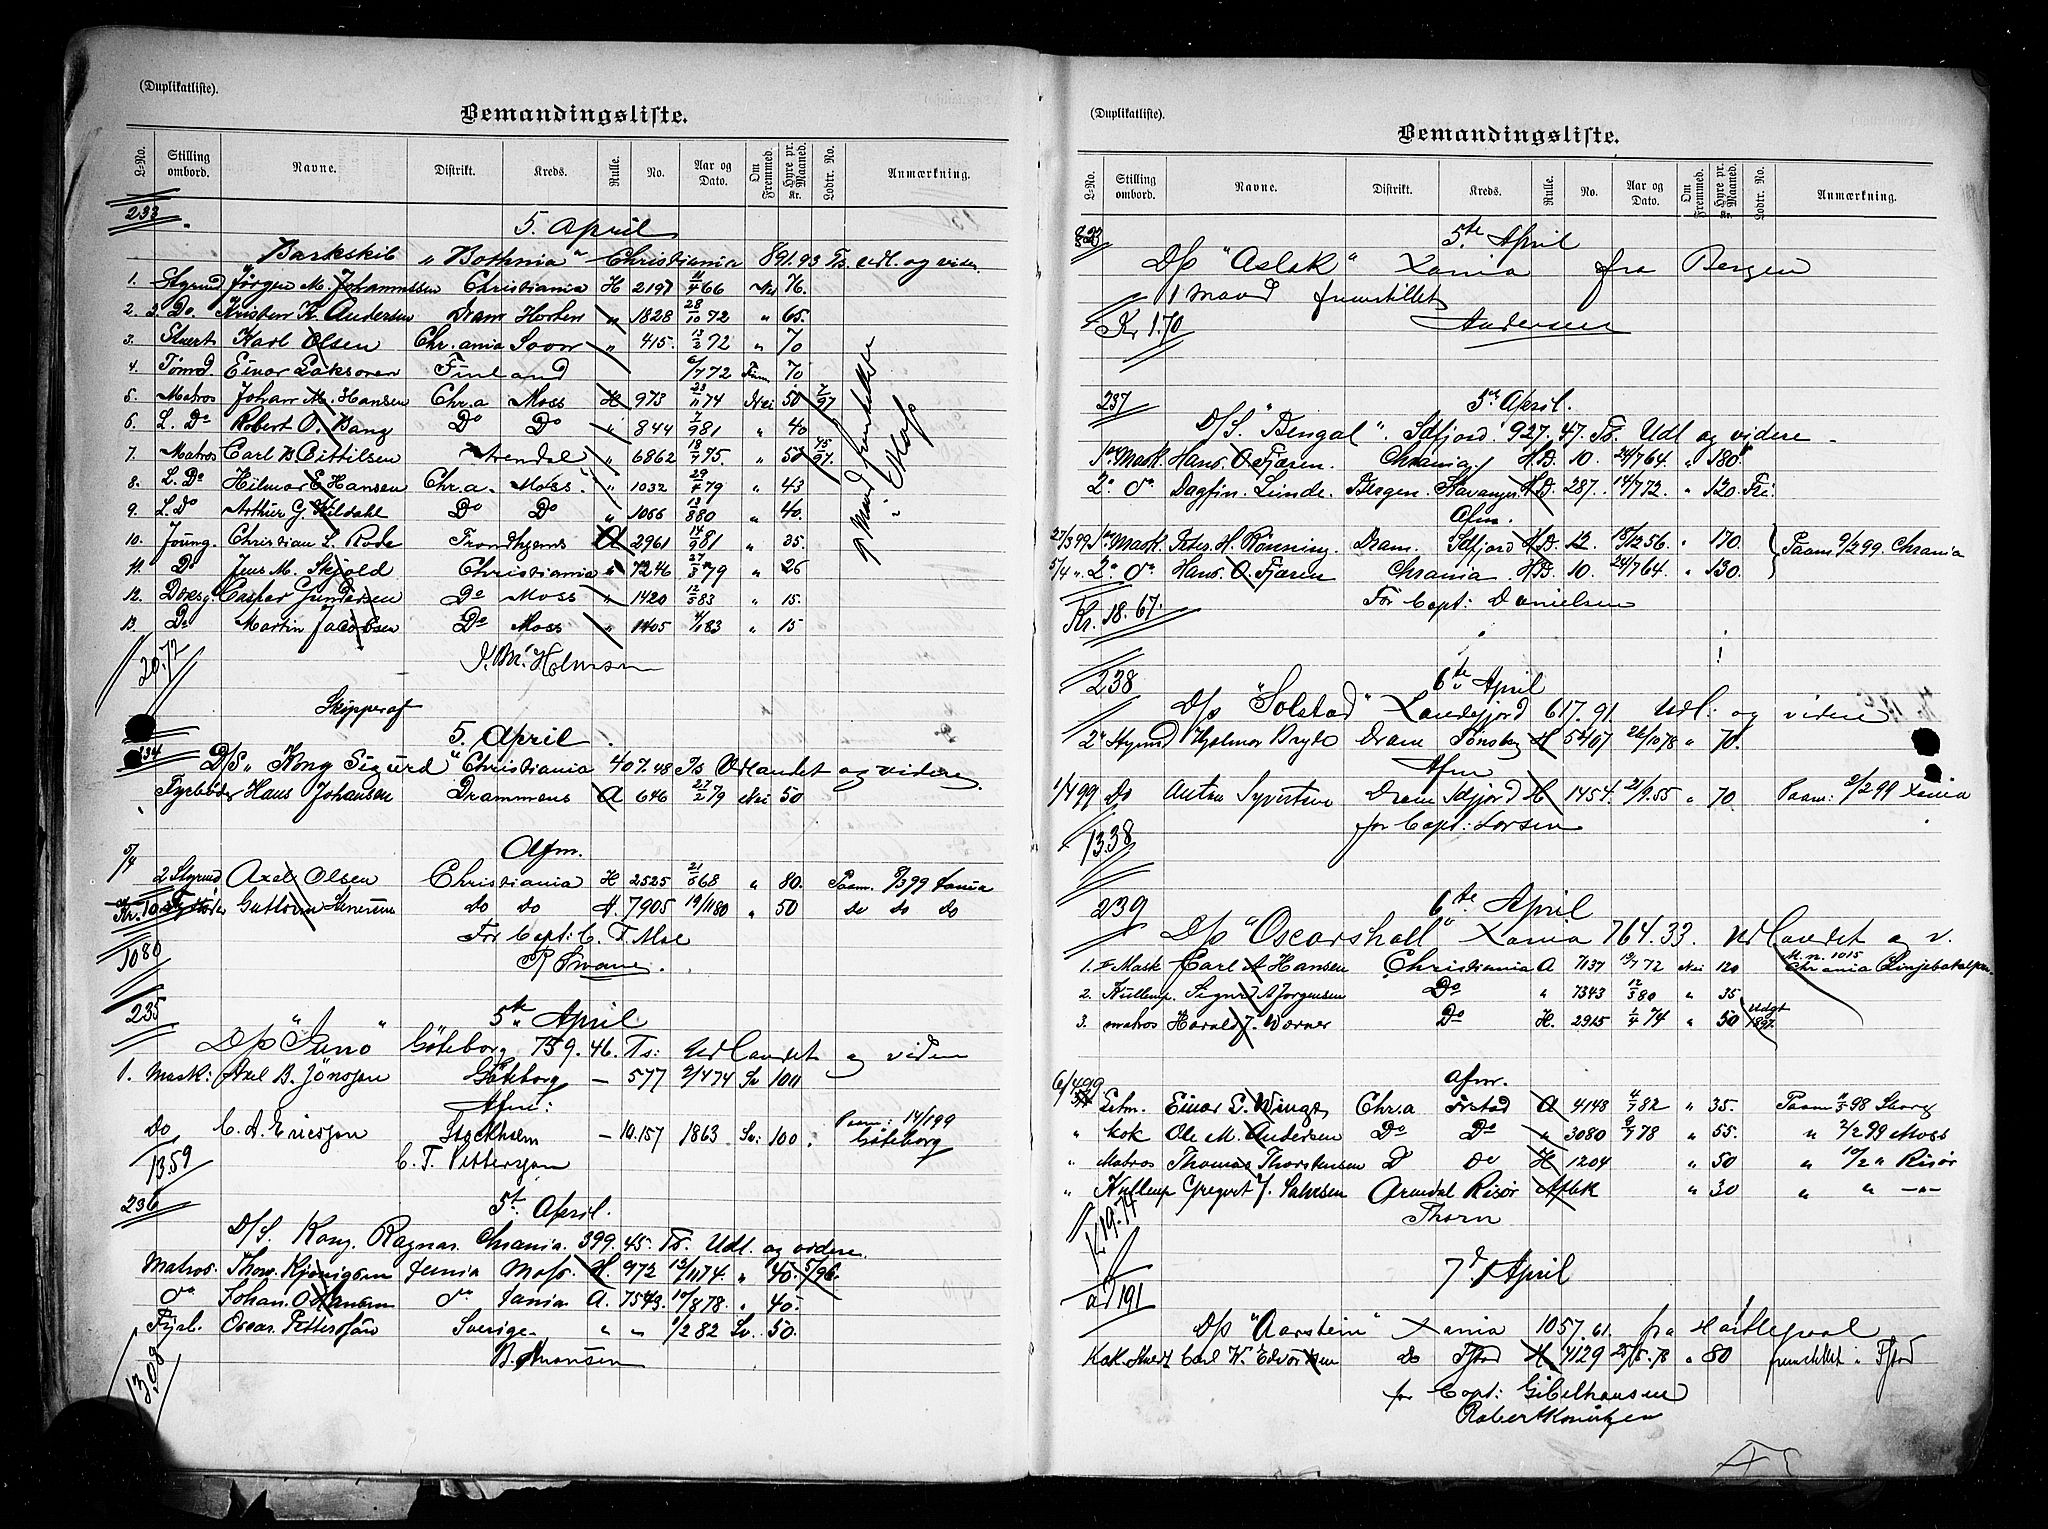 (Duplikatliste).
Bemandingsliste.
L-No. Stilling ombord. Navne. Distrikt. Kreds. Rulle. No. Aar og Dato. Om Fremmed. Hyre pr. Maaned. Kr. Lodtr. No. Anmærkning.
233
5. April
Barkskib "Bothnia" Christiania 891.93 Ts. udl. og vider.
1. Styrmd Jørgen M. Johannessen Christiania H 2197 11/4 66 Nei 76.
2. 2. Do Kristen K. Andersen Dram Horten " 1828 28/10 72 " 65.
3. Stuert Karl Olsen Chr.ania Soon " 415. 13/2 72 " 70
4. Tømd. Einar Isaksonen Finland 6/7 72 Finn 70
5. Matros Johan M. Hansen Chr.a Moss H 973 23/11 74 Nei 50 7/97
6. L. Do Robert O. Bang Do Do " 844 7/9 81 " 40
7. Matros Carl B Bittilsen Arendal " 6862 18/7 75. " 50 45/97.
8. L. Do Hilmar E Hansen Chr.a. Moss " 1032 29/ 79 " 43
9. L. Do Arthur G. Kildahl Do Do " 1066 13/8 80 " 40.
10. Joung. Christian L. Rode Trondhjems A 2961 14/9 81 " 35.
11. Do Jens M. Skjold Christiania " 7246 27/3 79 " 26
12. Deksg. Caspar Gundersen Do Moss " 1420 12/5 83 " 15.
13. Do Martin Jacobsen Do Moss " 1405 4/1 83 " 15
9 Mand fremstillet
20.72
J. M. Helmsen
Skipperaf
5. April
234
D/S "Kong Sigurd" Christiania 407.48 Ts Udlandet og videre.
Fyrbøder Hans Johansen Drammens A 646 27/2 79 Nei 50
5/4
Afm.
2 Styrmd Axel Olsen Christiania H 2525 21/6 68 " 80. Paam. 8/3 99 Xania
Guttorm do do A. 7905 19/11 80 " 50 do do do
1080
For Capt: C. T. Moe
235
5te April
D/S "Juno" Göteborg 759.46. Ts: Udlandet og viden
1. Mask: Axel B. Jönsson Göteborg — 577 2/4 74 Sv 100
Afm:
Do C. A. Ericsson Stockholm — 10.157 1863 Sv: 100. Paam: 14/1 99 Göteborg
1359
C. T. Pettersson
236
5t. April.
D/S. Kong. Ragnar. Chrania. 399.45. Ts. Udl. og videre.
Matros. Thorv. Kjønigsen Xania Moss. H. 972 12/11 74. " 45. 5/96.
do Johan. O Hansen do Xania. A. 7543. 10/8 78. " 40.
Fyrb. Oscar. Pettersson Sverige. " " 1/2 82 Sv. 50.
1308
(Duplikatliste).
Bemandingsliste.
L-No. Stilling ombord. Navne. Distrikt. Kreds. Rulle. No. Aar og Dato. Om Fremmed. Hyre pr. Maaned. Kr. Lodtr. No. Anmærkning.
5te April
D/S "Aslak" Xania fra Bergen
1 Mand fremstillet
Kr 1.70
Andersen
237
5te April.
D/S. "Bengal". Sdfjord. 927.47. Ts. Udl og videre.
1ste Mask. Hans. O. Fjæren. Chrania. H.D. 10. 24/7 64. " 180.
2. do Dagfin. Linde. Bergen. Stavanger. H.D. 287. 14/7 72. " 120. Fri
Afm.
27/3 99 1ste Mask. Peter. H. Rønning. Dram. Sdfjord H.D. 12. 15/12 56. " 170. Paam 9/2 99. Chrania
5/4 ". 2. do Hans. O. Fjæren Chrania. H.D. 10. 24/7 64. " 130.
Kr. 18.67.
For Capt: Danielsen
238
6te April
D/S "Solstad" Sandefjord 617.91. Udl: og videre
2. Styrmd Hjalmar Bryde Dram Tønsberg H 5407 26/10 78 " 70.
Afm
1/4 99 Do Anton Syvertsen Dram Sdfjord H 1454. 21/9.55 " 70. Paam: 2/2 99 Xania
for Capt: Larsen
1338
239
6te April
D/S "Oscarshall" Xania 764.33. Udlandet og v.
1. F Mask Carl A Hansen Christiania A 7137 13/7 72 Nei 120 M. n. 1015 Chrania Linjebataljon
2. Kullemp. Sigurd A Jørgensen Do " 7343 12/3 80 " 35
3. matros Harald J. Warner Do H. 2915 1/4 74 " 50 Udgt 1897.
6/4 99
Afm.
Letm. Einar E. Winge Chr.a Frstad A 4148 4/7 82 " 35. Paam 11/3 98 Sborg
" Kok Ole M. Andersen Do Do " 3080 9/7 78 " 55. " 2/2 99 Moss
" Matros Thomas Thorstensen D Do H 1204 " 50 " 10/2 " Risør
" Kullemp Gregert J. Salvesen Arendal Risør Afbk " 30 " " —"—
Kr 19.74
Thorn
7de April
ad 191
D/S "Aarstein" Xania 1057.61. fra Hartlepool
Kok. Stuert Carl W. Edvardsen do Fstad H. 4129 25/5.78 " 80 fremstillet i Fstad
for Capt: Gibelhausen
Robert Knutzen